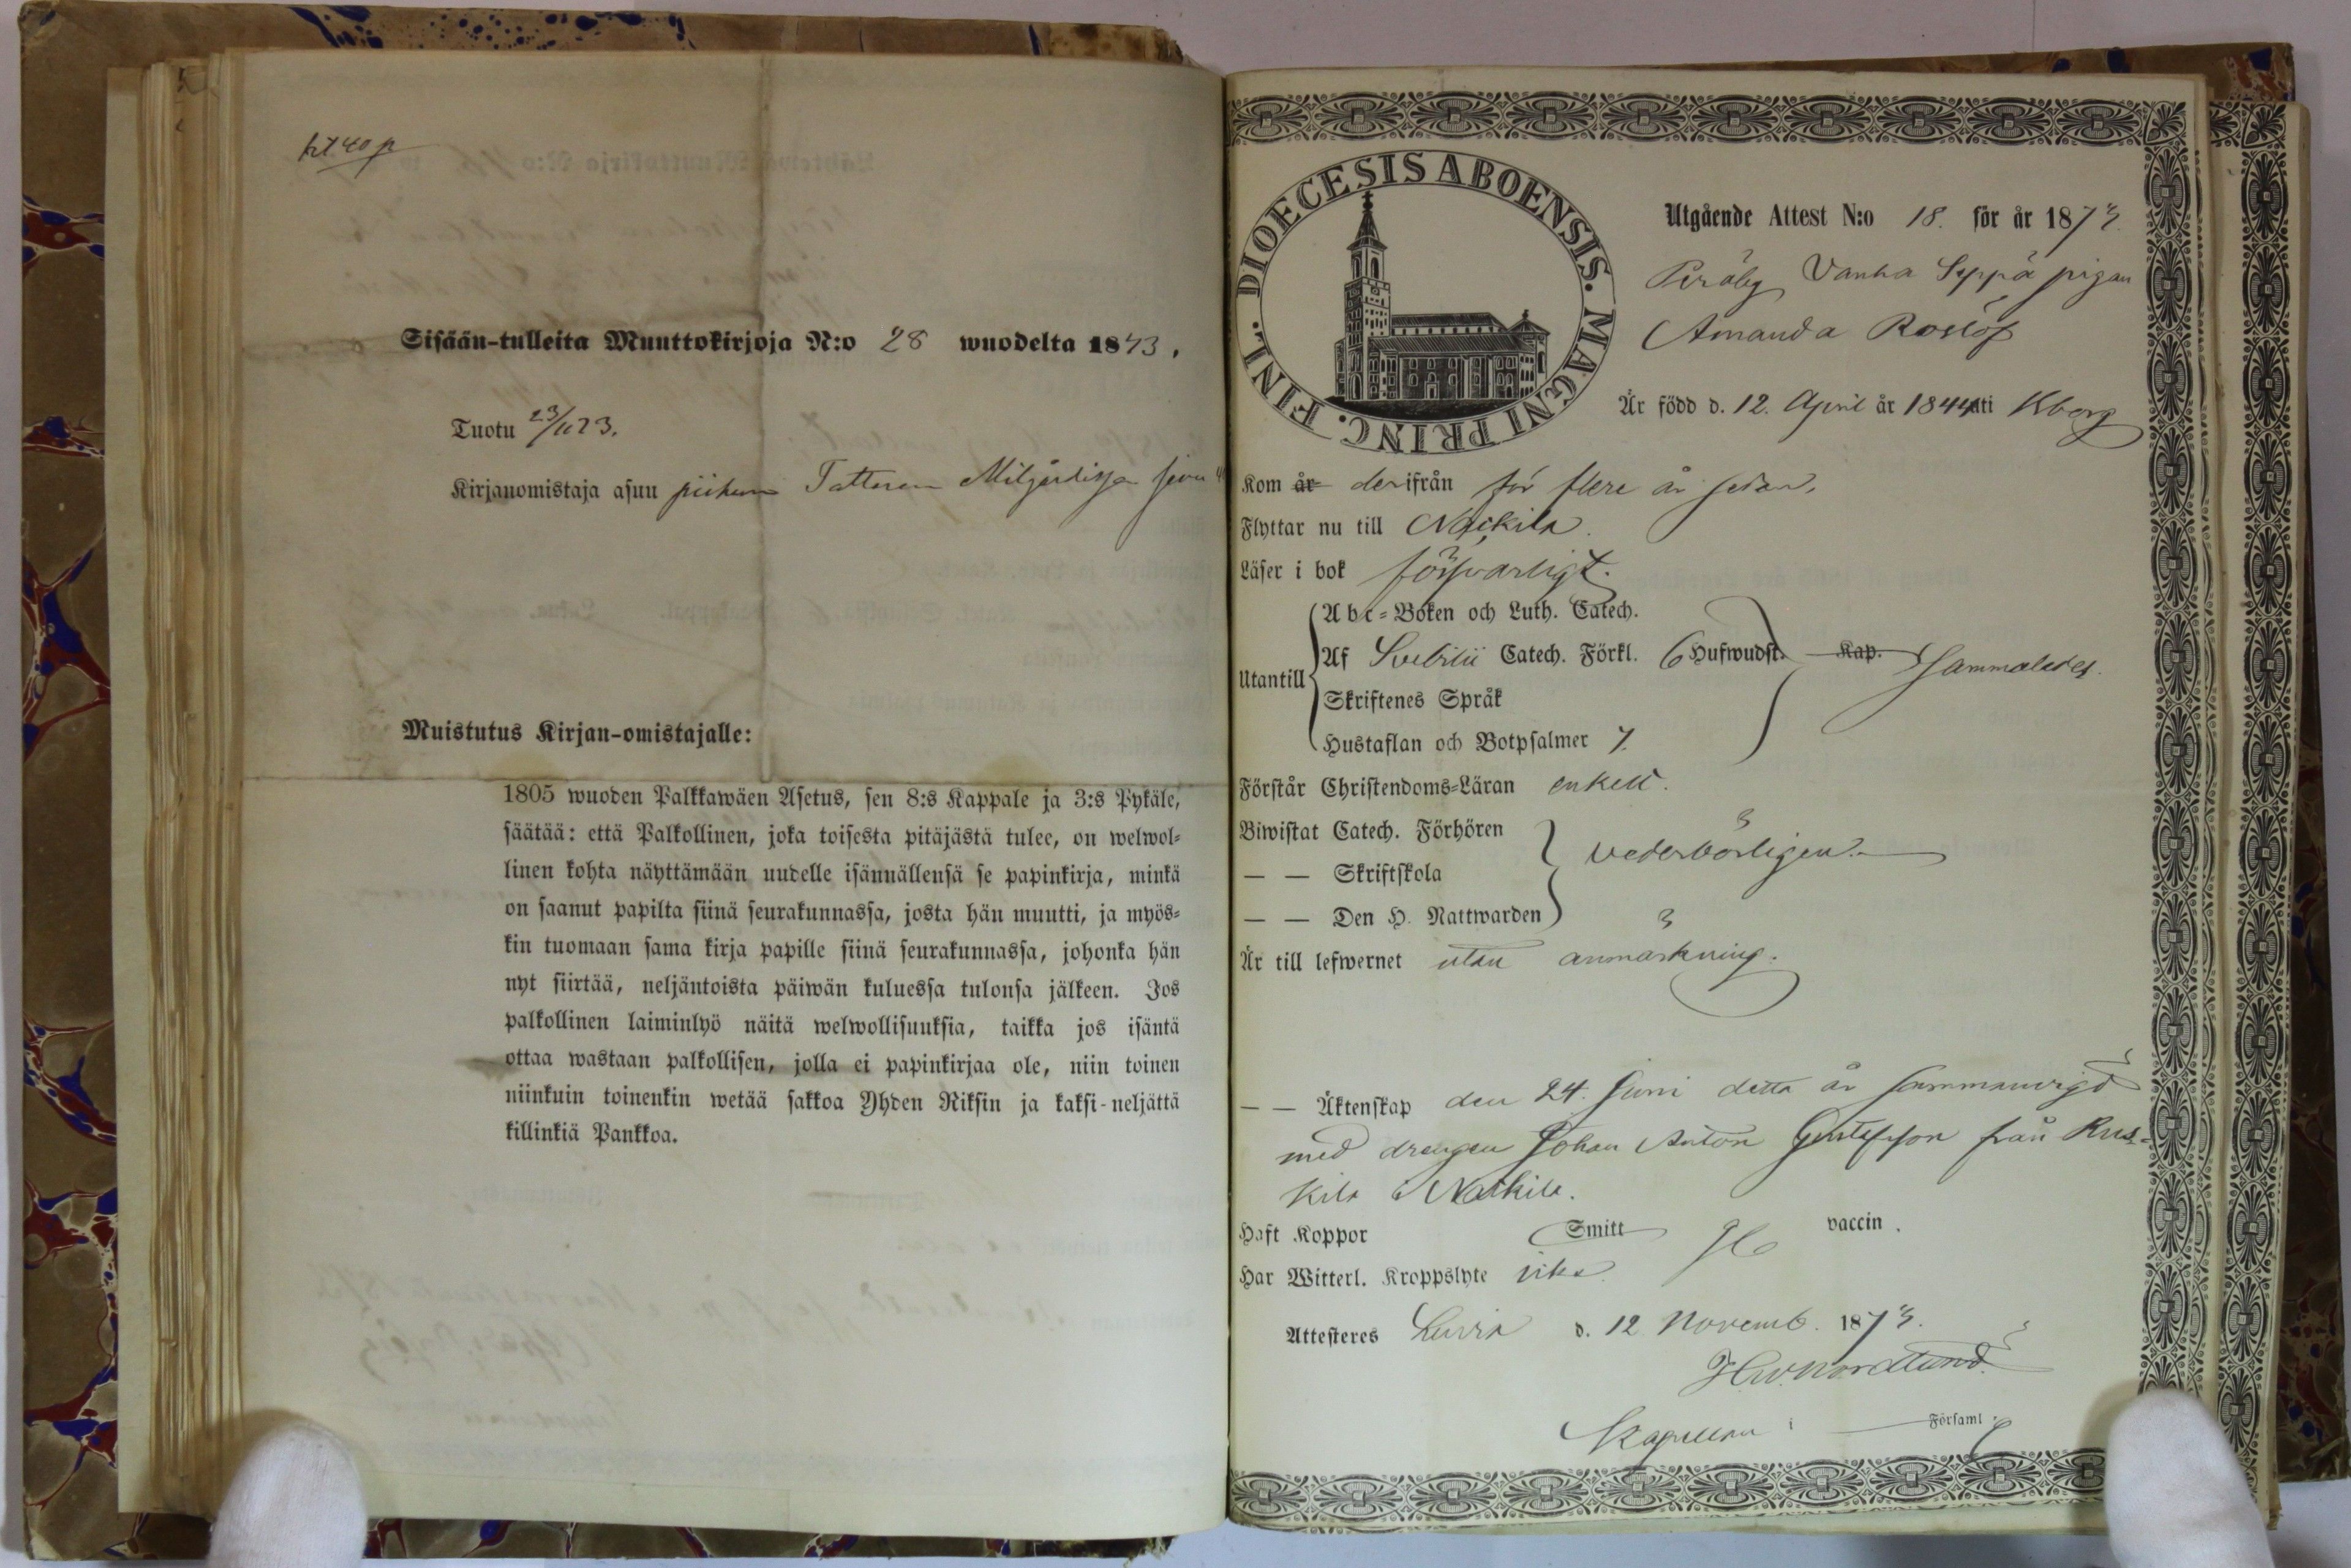 Sisään-tulleita Muuttokirjoja N:o 28 wuodelta 1873.
Tuotu 23/11 73.
Kirjanomistaja asuu piikana Tattaran
Muistutus Kirjan-omistajalle:
1805 wuoden Palkkawäen Asetus, sen 8:s Kappale ja 3:s Pykäle,
säätää: että Palkollinen, joka toisesta pitäjästä tulee, on welwol-
linen kohta näyttämään uudelle isännällensä se papinkirja, minkä
on saanut papilta siinä seurakunnassa, josta hän muutti, ja myös-
kin tuomaan sama kirja papille siinä seurakunnassa, johonka hän
nyt siirtää, neljäntoista päiwän kuluessa tulonsa jälkeen. Jos
palkollinen laiminlyö näitä welwollisuuksia, taikka jos isäntä
ottaa wastaan palkollisen, jolla ei papinkirjaa ole, niin toinen
niinkuin toinenkin wetää sakkoa Yhden Riksin ja kaksi-neljättä
killinkiä Pankkoa.
DIOECESIS ABOENSIS. MAGNI PRINC. FINL.
Utgående Attest N:o 18. för år 1873.
Peräby Vanha Seppä pigan
Amanda Roslöf
Är född d. 12. April år 1844 uti Kborg
Kom år derifrån för flere år sedan.
Flyttar nu till Nackila.
Läser i bok försvarligt.
Utantill
Abc-Boken och Luth. Catech.
Af Svebilii Catech. Förkl. 6 Hufwudst. Kap. Sammaledes.
Skriftenes Språk
Hustaflan och Botpsalmer 7.
Förstår Christendoms-Läran enkelt.
Biwistat Catech. Förhören
— — Skriftskola vederbörligen.
— — Den H. Nattwarden
Är till lefwernet utan anmärkning.
— — Äktenskap den 24. Juni detta år sammanvigd
med drengen Johan Anton Gustafsson från Rus-
kila i Nackila.
Haft Koppor Smitt vaccin.
Har Witterl. Kroppslyte icke.
Attesteres Luvia d. 12 Novemb. 1873.
H.W. Nordlund.
Kapellan i Församl.